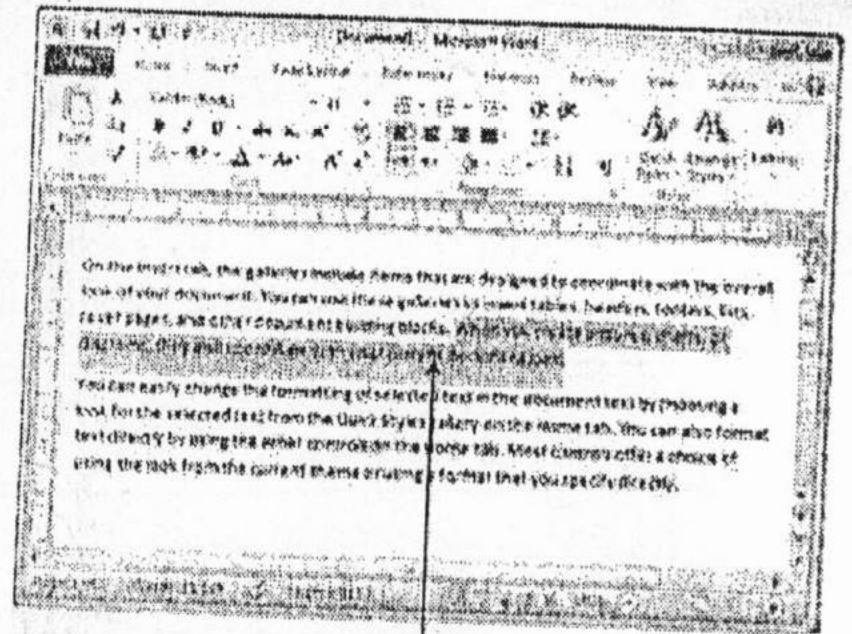 [Document] - Microsoft Word
References Review View
Calibri (Body)
Paste
Quick Change Editing
Styles Styles
Paragraph
On the Insert tab, the galleries include items that are designed to coordinate with the overall
look of your document. You can use these galleries to insert tables, headers, footers, lists,
cover pages, and other document building blocks. When you create pictures, charts, or
diagrams, they also coordinate with your current document look.
You can easily change the formatting of selected text in the document text by choosing a
look for the selected text from the Quick Styles gallery on the Home tab. You can also format
text directly by using the other controls on the Home tab. Most controls offer a choice of
using the look from the current theme or using a format that you specify directly.